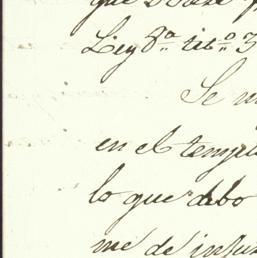 que
Ley 8ª titº 3
Se
en el templ
lo que debo
me de